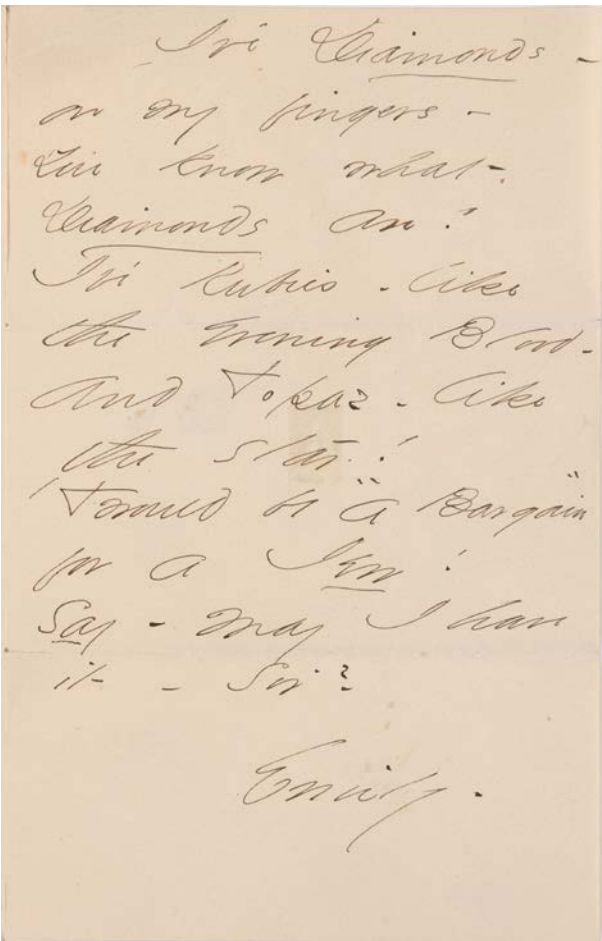 I've Diamonds -
on my fingers -
You know what
Diamonds are!
I've Rubies - like
the Evening Blood -
And Topaz - like
the star!
'Twould be "a Bargain"
for a Jew!
Say - may I have
it - Sir?
Emily.